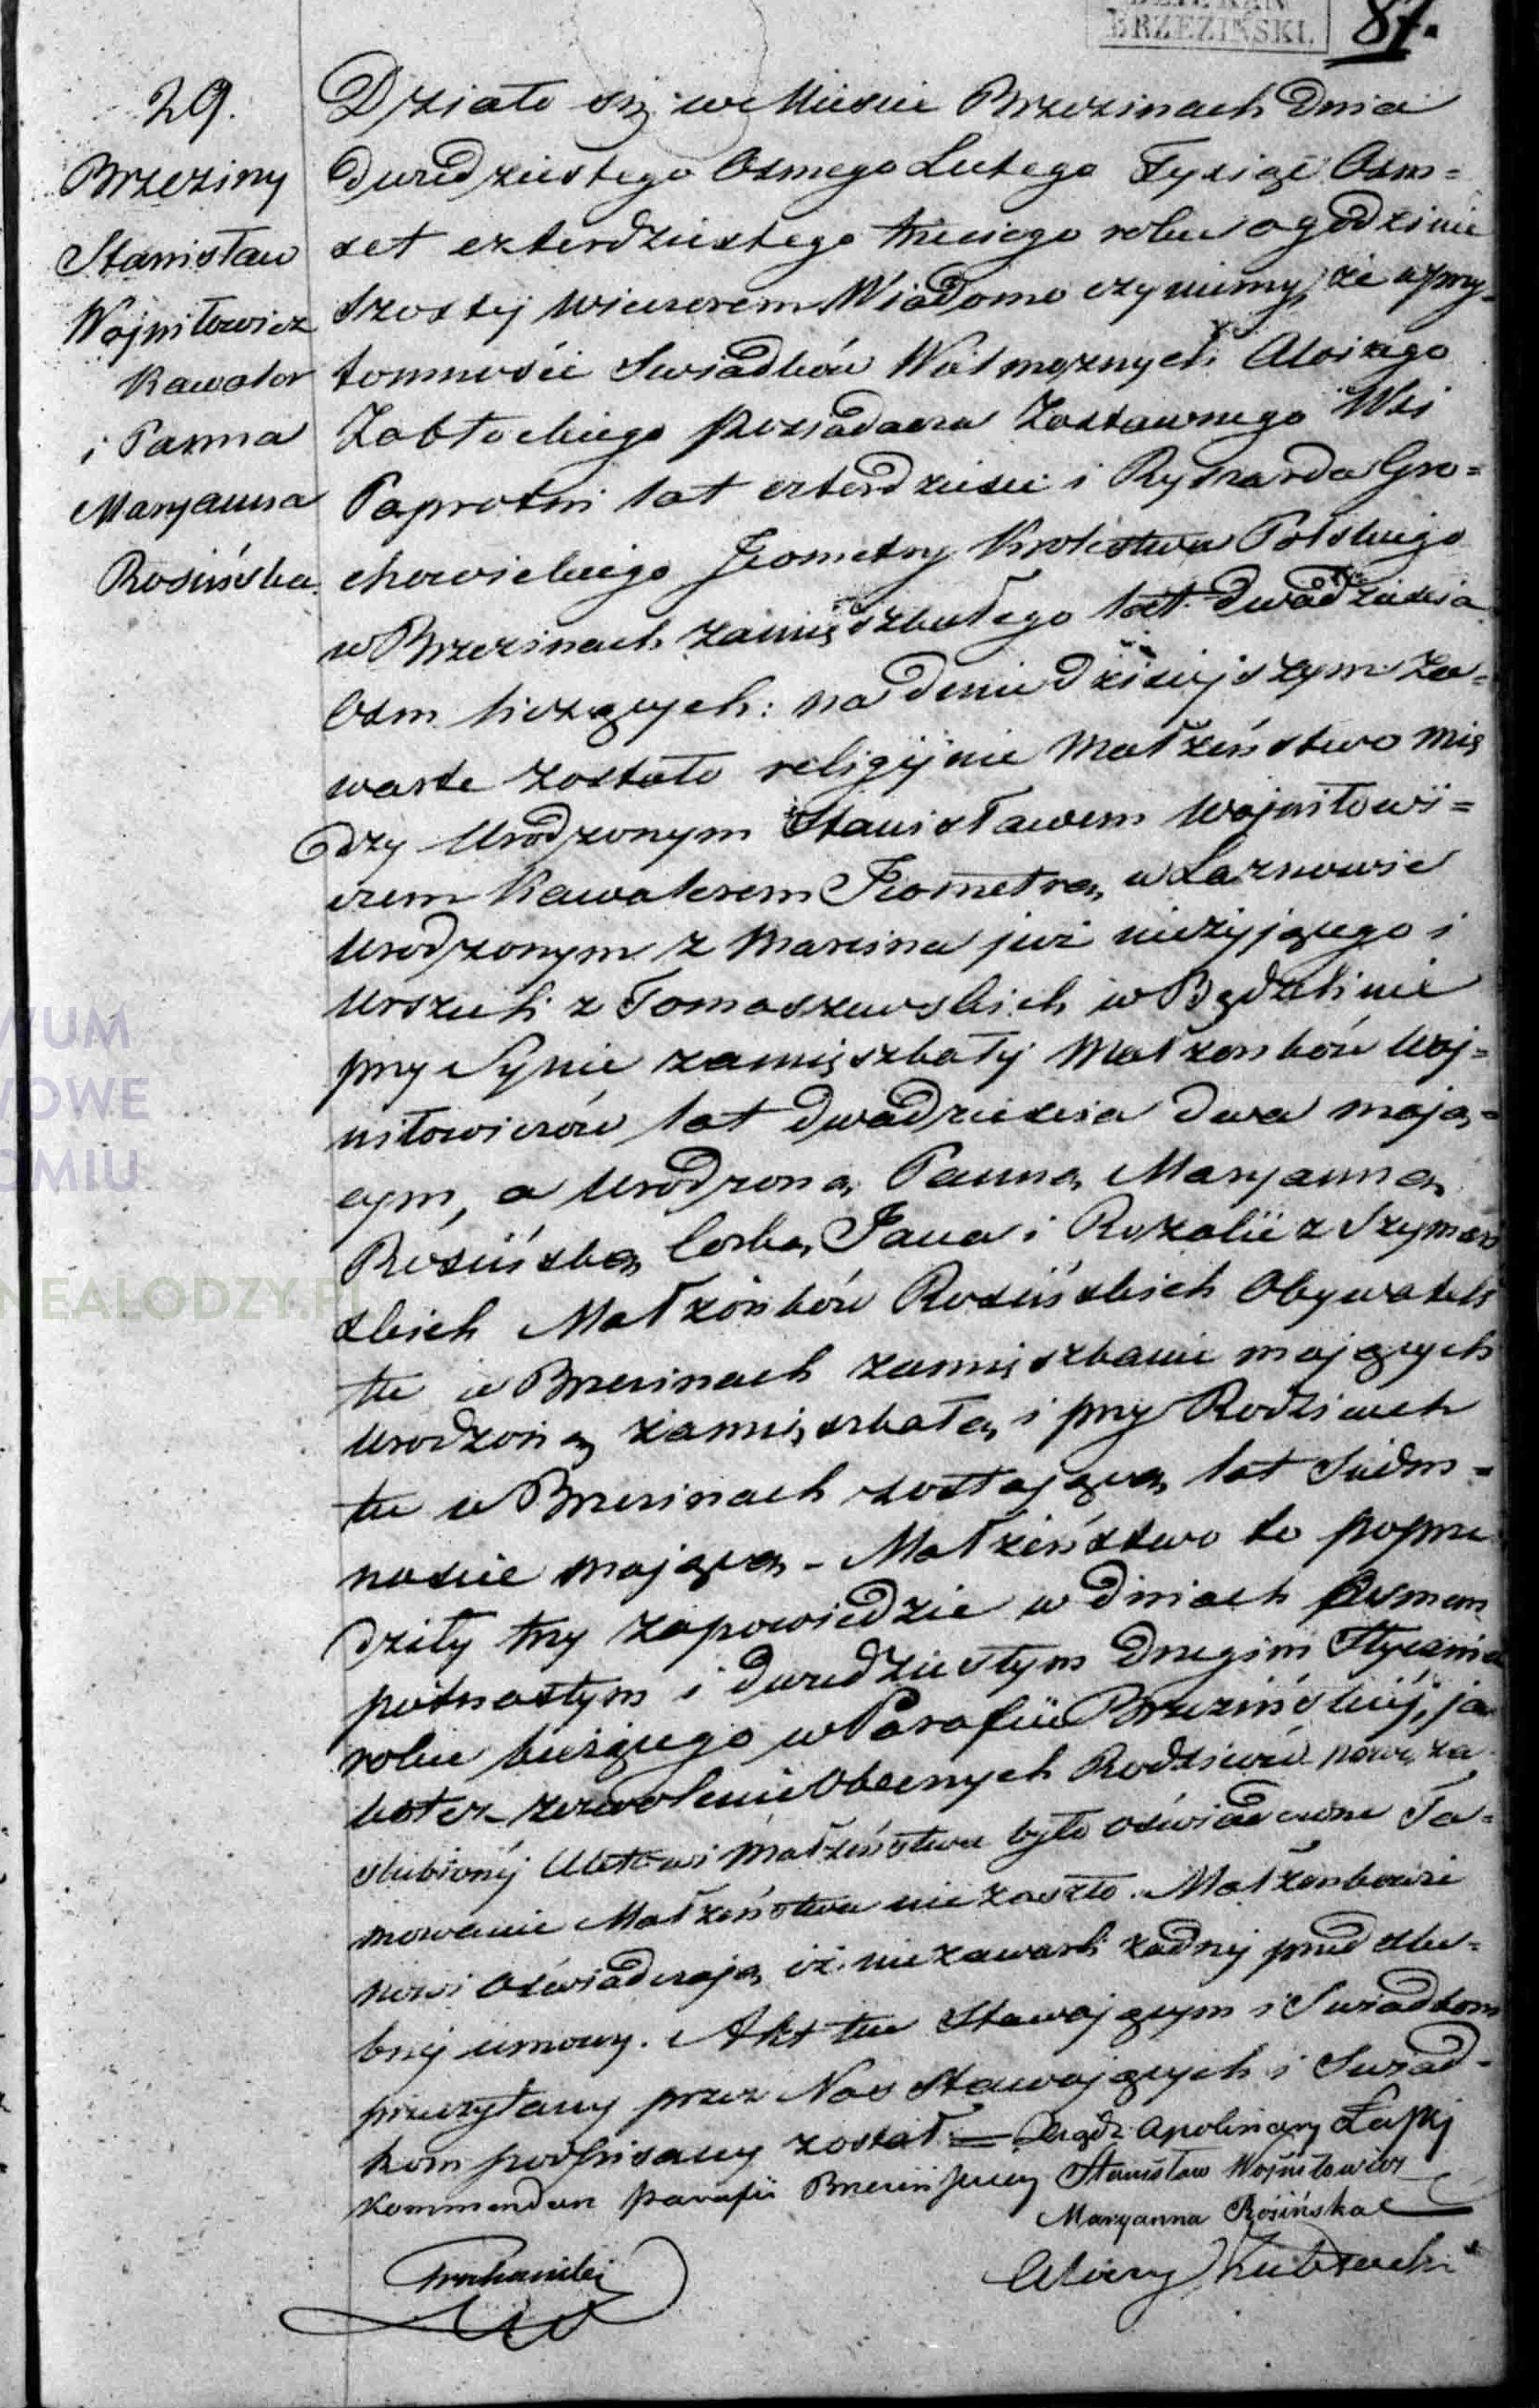 DZIEKAN
BRZEZIŃSKI.
87.
29.
Brzeziny
Stanisław
Wojniłowicz
Kawaler
i Panna
Maryanna
Rosińska.
Działo się w Mieście Brzezinach Dnia
dwudziestego Osmego Lutego Tysiąc Osm=
set czterdziestego trzeciego roku o godzinie
szostej wieczorem Wiadomo czynimy, że w przy-
tomności Swiadków Wielmożnych Aloizego
Zabłockiego Possiadacza Zastawnego Wsi
Paprotni lat czterdzieści i Ryszarda Gro=
chowickiego Jeometry Krolestwa Polskiego
w Brzezinach zamięszkałego lat dwadzieścia
Osm liczących: na dniu dzisiejszym Za=
warte zostało religijnie Małżeństwo mię
dzy Urodzonym Stanisławem Wojniłowi=
czem Kawalerem Jeometrą, w Łaznowie
Urodzonym z Marcina już nieżyjącego i
Urszuli z Tomaszewskich w Będzelinie
przy Synie zamięszkałej Małżonków Woj=
niłowiczów lat dwadzieścia dwa mają=
cym, a Urodzoną Panną Maryanną
Rosińską Corką Jana i Rozalii z Szymań
skich Małżonków Rosińskich Obywateli
tu w Brzezinach zamięszkanie mających
Urodzoną zamięszkałą i przy Rodzicach
tu w Brzezinach zostającą lat Siedm=
naście mającą - Małżeństwo to poprze
dziły trzy zapowiedzie w dniach Osmym
piętnastym i dwudziestym Drugim Stycznia
roku bieżącego w Parafii Brzezińskiej, ja
koteż zezwolenie Obecnych Rodziców nowo za
slubionej Aktowi Małżeństwa było oświadczone Ta=
mowanie Małżeństwa nie zaszło. Małżonkowie
nowi Oświadczają iż nie zawarli żadnej przedslu=
bnej umowy. Akt ten Stawającym i Swiadkom
przeczytany przez Nas Stawających i Swiad-
kom podpisany został = Xiądz Apolinary Łapij
Kommendarz parafii Brzezińskiej Stanisław Wojniłowicz
Maryanna Rosińska
Alojzy Zabłocki
WUM
WOWE
OMIU
NEALODZY.PL